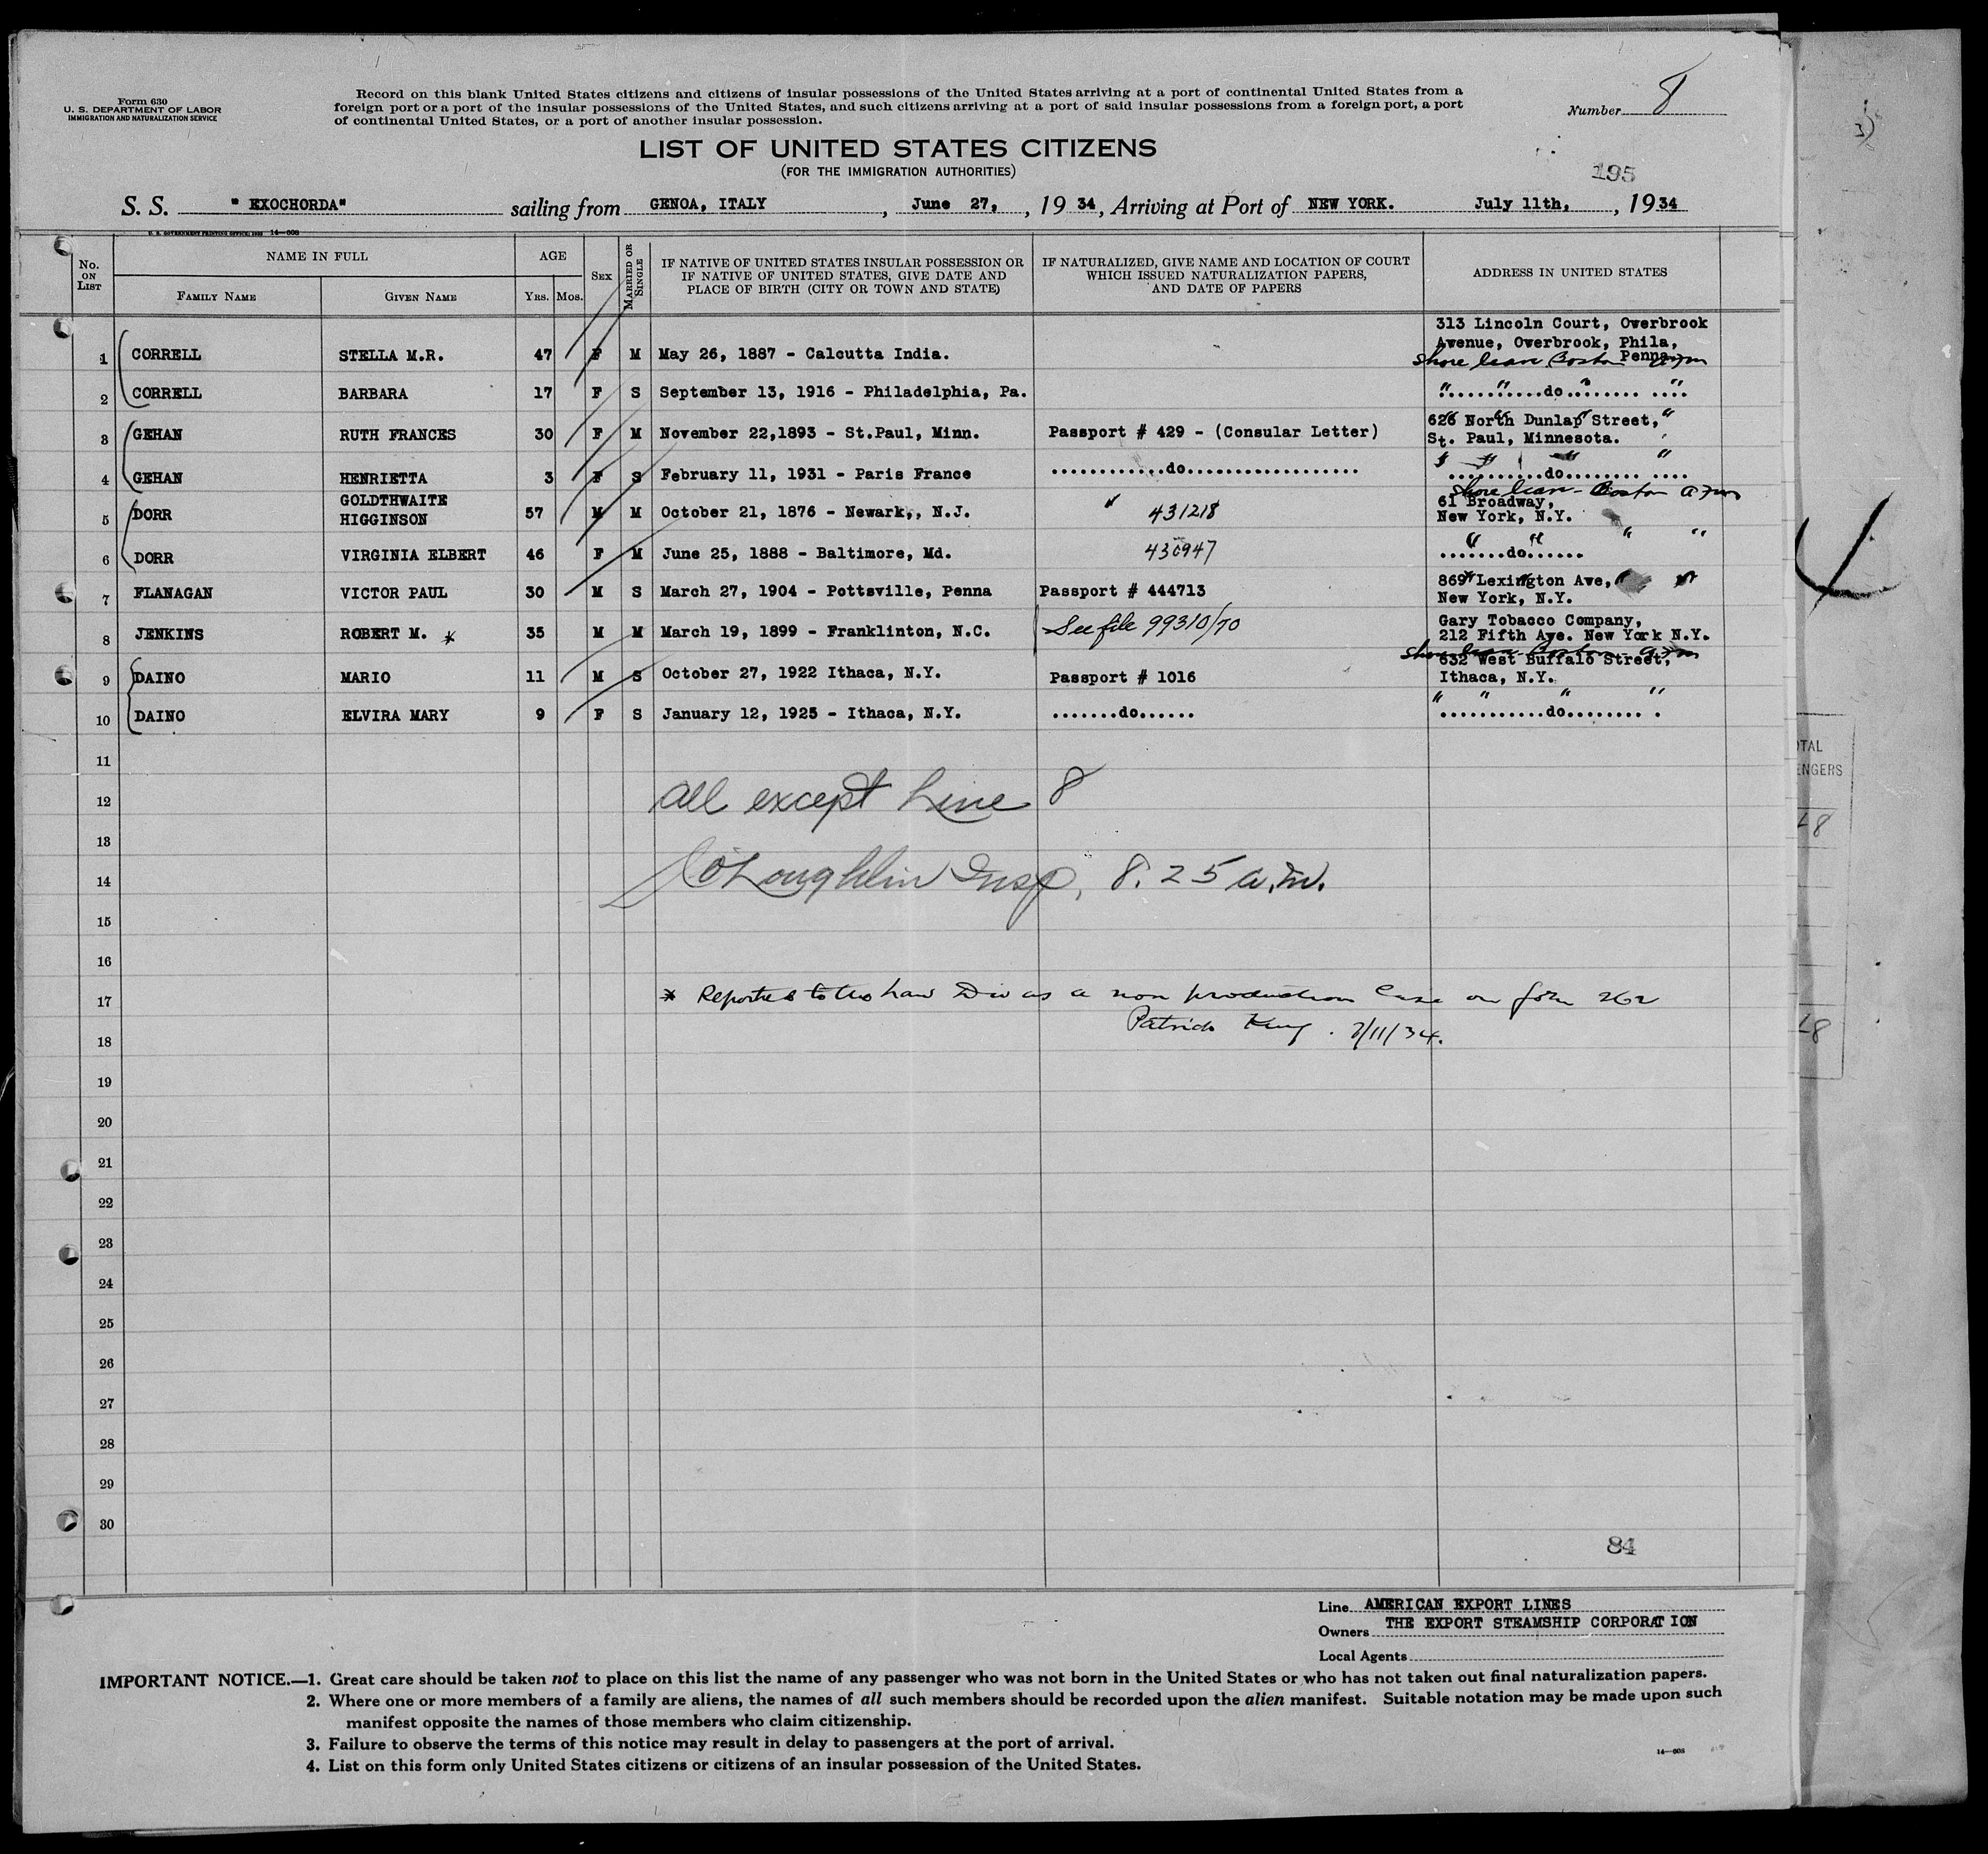 Form 630
U. S. DEPARTMENT OF LABOR
IMMIGRATION AND NATURALIZATION SERVICE
Record on this blank United States citizens and citizens of insular possessions of the United States arriving at a port of continental United States from a
foreign port or a port of the insular possessions of the United States, and such citizens arriving at a port of said insular possessions from a foreign port, a port
of continental United States, or a port of another insular possession.
Number 8
LIST OF UNITED STATES CITIZENS
(FOR THE IMMIGRATION AUTHORITIES)
195
S. S. "EXOCHORDA" sailing from GENOA, ITALY, June 27, 1934, Arriving at Port of NEW YORK. July 11th, 1934
U. S. GOVERNMENT PRINTING OFFICE: 1933 14—608
No. ON LIST
NAME IN FULL
FAMILY NAME
GIVEN NAME
AGE
YRS. MOS.
SEX
MARRIED OR SINGLE
IF NATIVE OF UNITED STATES INSULAR POSSESSION OR
IF NATIVE OF UNITED STATES, GIVE DATE AND
PLACE OF BIRTH (CITY OR TOWN AND STATE)
IF NATURALIZED, GIVE NAME AND LOCATION OF COURT
WHICH ISSUED NATURALIZATION PAPERS,
AND DATE OF PAPERS
ADDRESS IN UNITED STATES
1 CORRELL STELLA M.R. 47 F M May 26, 1887 - Calcutta India. 313 Lincoln Court, Overbrook
Avenue, Overbrook, Phila,
Penna.
Shore leave Boston
2 CORRELL BARBARA 17 F S September 13, 1916 - Philadelphia, Pa. " " do " "
3 GEHAN RUTH FRANCES 30 F M November 22,1893 - St.Paul, Minn. Passport # 429 - (Consular Letter) 626 North Dunlap Street,
St. Paul, Minnesota.
4 GEHAN HENRIETTA 3 F S February 11, 1931 - Paris France ............do.................. ..........do........ ....
Shore leave - Boston
5 DORR GOLDTHWAITE
HIGGINSON 57 M M October 21, 1876 - Newark,, N.J. " 431218 61 Broadway,
New York, N.Y.
6 DORR VIRGINIA ELBERT 46 F M June 25, 1888 - Baltimore, Md. 430947 .......do......
7 FLANAGAN VICTOR PAUL 30 M S March 27, 1904 - Pottsville, Penna Passport # 444713 869 Lexington Ave,
New York, N.Y.
8 JENKINS ROBERT M. * 35 M M March 19, 1899 - Franklinton, N.C. See file 99310/70 Gary Tobacco Company,
212 Fifth Ave. New York N.Y.
Shore leave Boston
9 DAINO MARIO 11 M S October 27, 1922 Ithaca, N.Y. Passport # 1016 632 West Buffalo Street,
Ithaca, N.Y.
10 DAINO ELVIRA MARY 9 F S January 12, 1925 - Ithaca, N.Y. .......do...... ...........do........ .
11
12 all except Line 8
13
14 O'Loughlin Insp, 8.25 a.m.
15
16
17 * Reported to the Law Div as a non production case on form 262
Patrick King. 7/11/34.
18
19
20
21
22
23
24
25
26
27
28
29
30
84
Line AMERICAN EXPORT LINES
Owners THE EXPORT STEAMSHIP CORPORATION
Local Agents
IMPORTANT NOTICE.—1. Great care should be taken not to place on this list the name of any passenger who was not born in the United States or who has not taken out final naturalization papers.
2. Where one or more members of a family are aliens, the names of all such members should be recorded upon the alien manifest. Suitable notation may be made upon such
manifest opposite the names of those members who claim citizenship.
3. Failure to observe the terms of this notice may result in delay to passengers at the port of arrival.
4. List on this form only United States citizens or citizens of an insular possession of the United States.
14—608